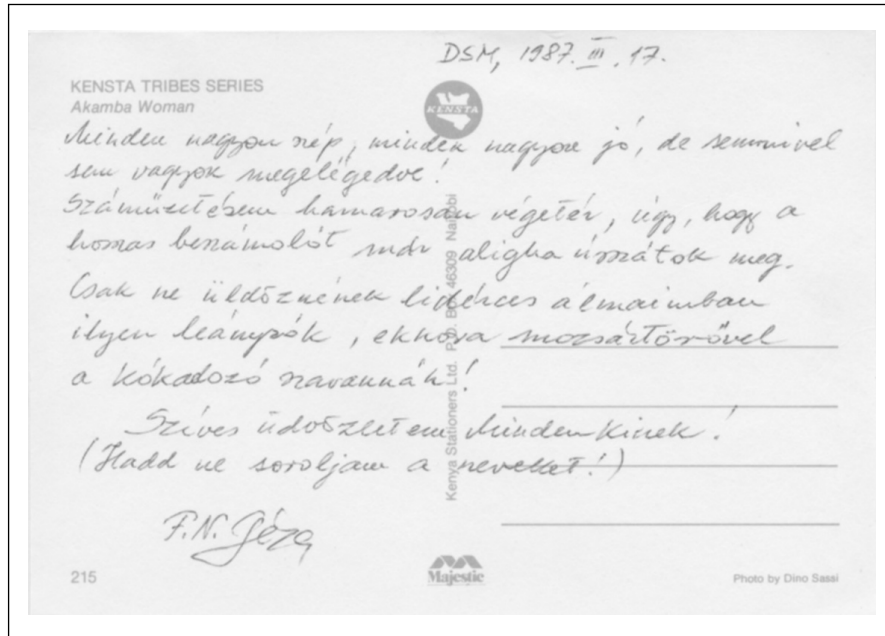 DSM, 1987. III. 17.
KENSTA TRIBES SERIES
Akamba Woman
KENSTA
Minden nagyon szép, minden nagyon jó, de semmivel
sem vagyok megelégedve!
Száműzetésem hamarosan végetér, úgy, hogy a
hosszas beszámolót már aligha ússzátok meg.
Csak ne üldöznének lidérces álmaimban
ilyen leánypók, mozsártörővel
a szavannák!
Szíves üdvözletem Mindenkinek!
(Hadd ne soroljam a neveket!)
F.N. Géza
Kenya Stationers Ltd. P.O. Box 46309 Nairobi
215
Majestic
Photo by Dino Sassi